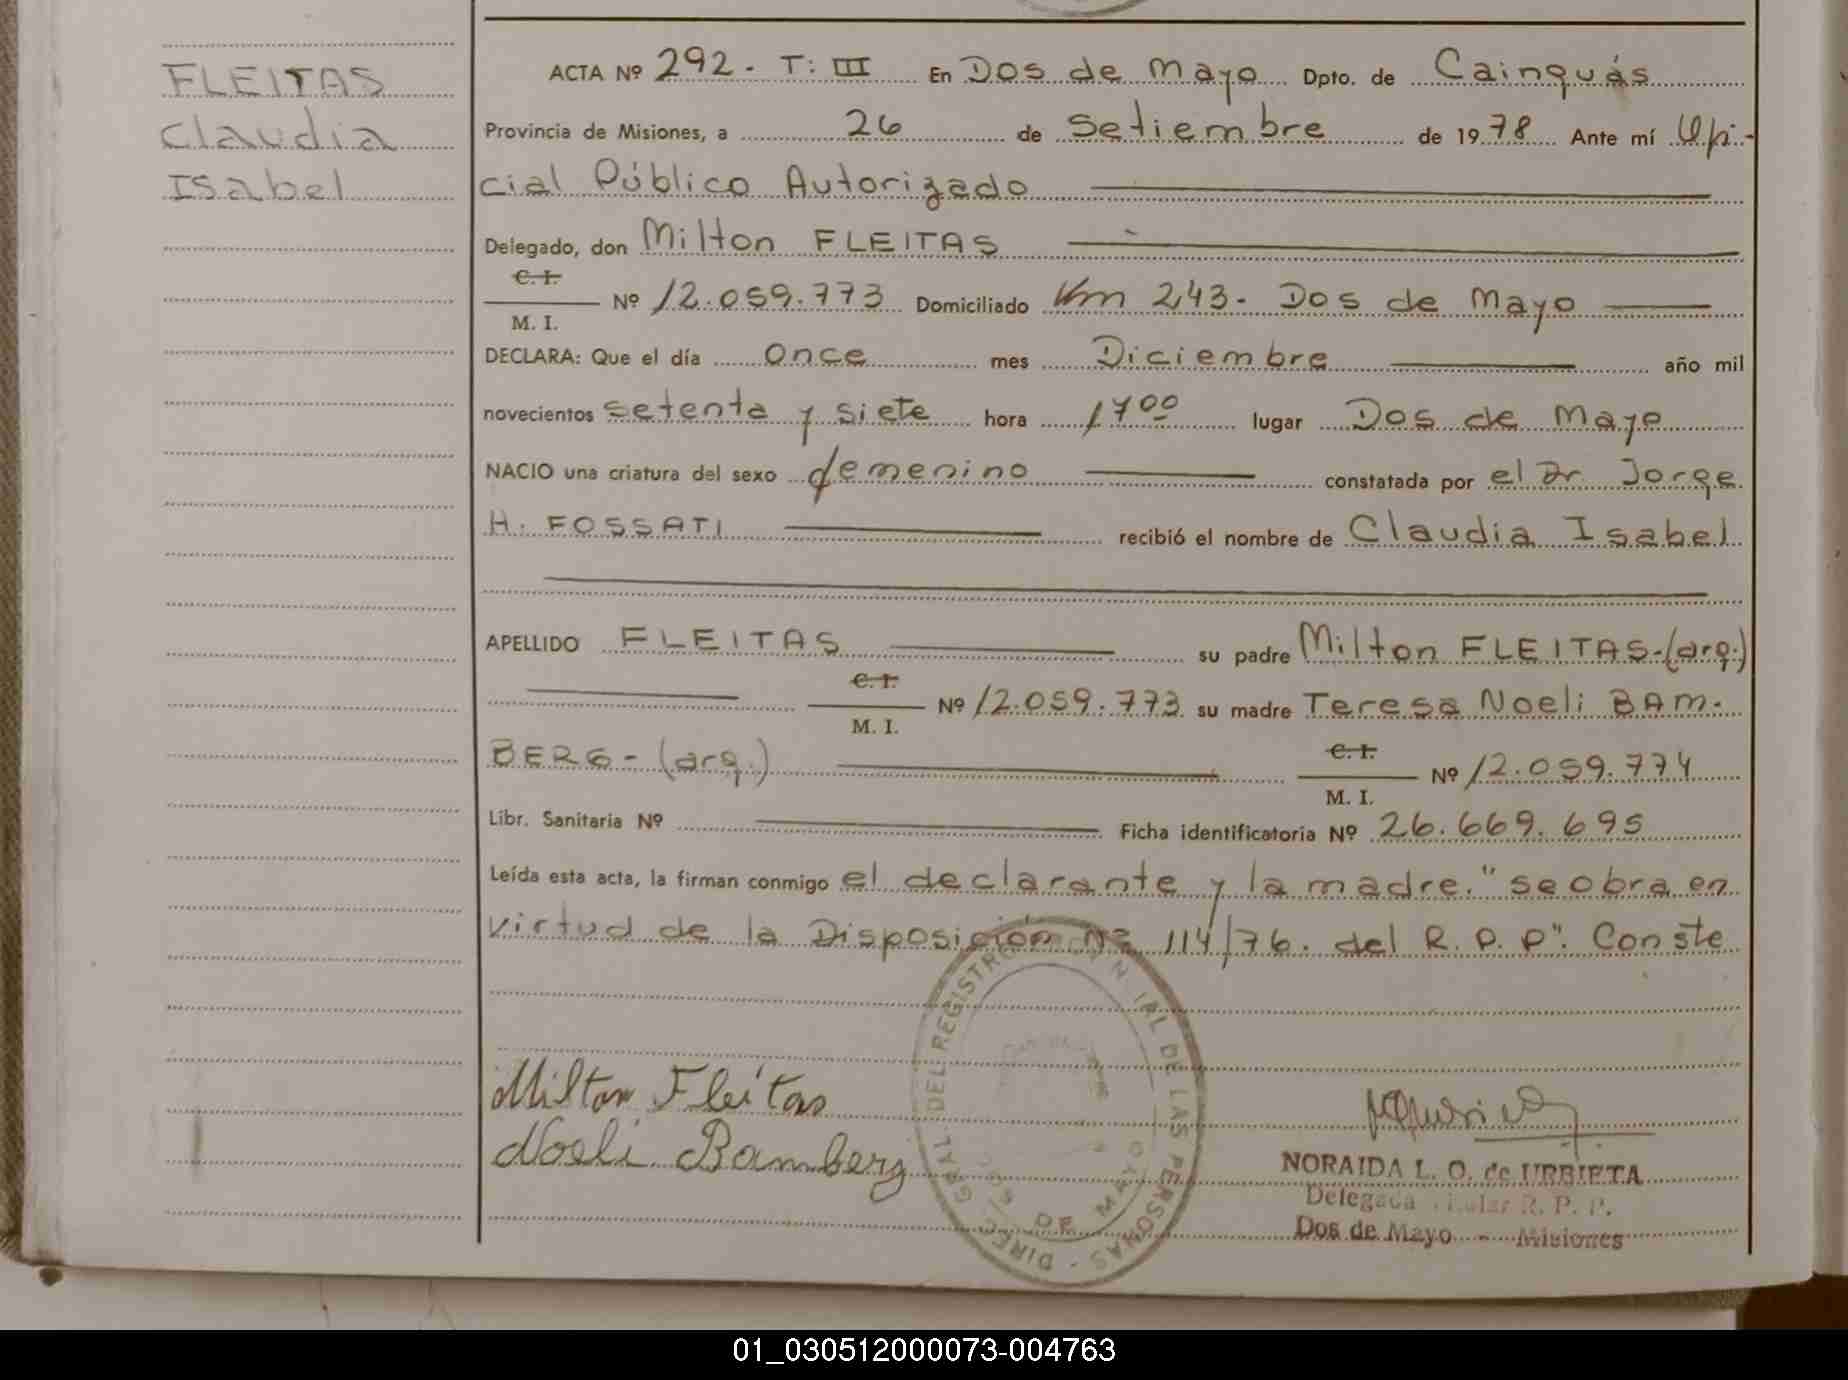 FLEITAS
Claudia
Isabel
ACTA Nº 292. T: III En Dos de Mayo Dpto. de Cainguás
Provincia de Misiones, a 26 de Setiembre de 1978 Ante mí Ofi-
cial Público Autorizado
Delegado, don Milton FLEITAS
C. I.
M. I. Nº 12.059.773 Domiciliado Km 243. Dos de Mayo
DECLARA: Que el día once mes Diciembre año mil
novecientos setenta y siete hora 1700 lugar Dos de Mayo
NACIO una criatura del sexo femenino constatada por el Dr. Jorge
H. FOSSATI recibió el nombre de Claudia Isabel
APELLIDO FLEITAS su padre Milton FLEITAS-(arg.)
C. I.
M. I. Nº 12.059.773 su madre Teresa Noeli BAM-
BERG-(arg.) C. I.
M. I. Nº 12.059.774
Libr. Sanitaria Nº Ficha identificatoria Nº 26.669.695
Leída esta acta, la firman conmigo el declarante y la madre." se obra en
virtud de la Disposición Nº 114/76. del R. P. P". Conste
Milton Fleitas
Noeli Bamberg
DIREC. GRAL. DEL REGISTRO DE LAS PERSONAS
DOS DE MAYO
NORAIDA L. O. de URBIETA
Delegada Titular R. P. P.
Dos de Mayo - Misiones
01_030512000073-004763